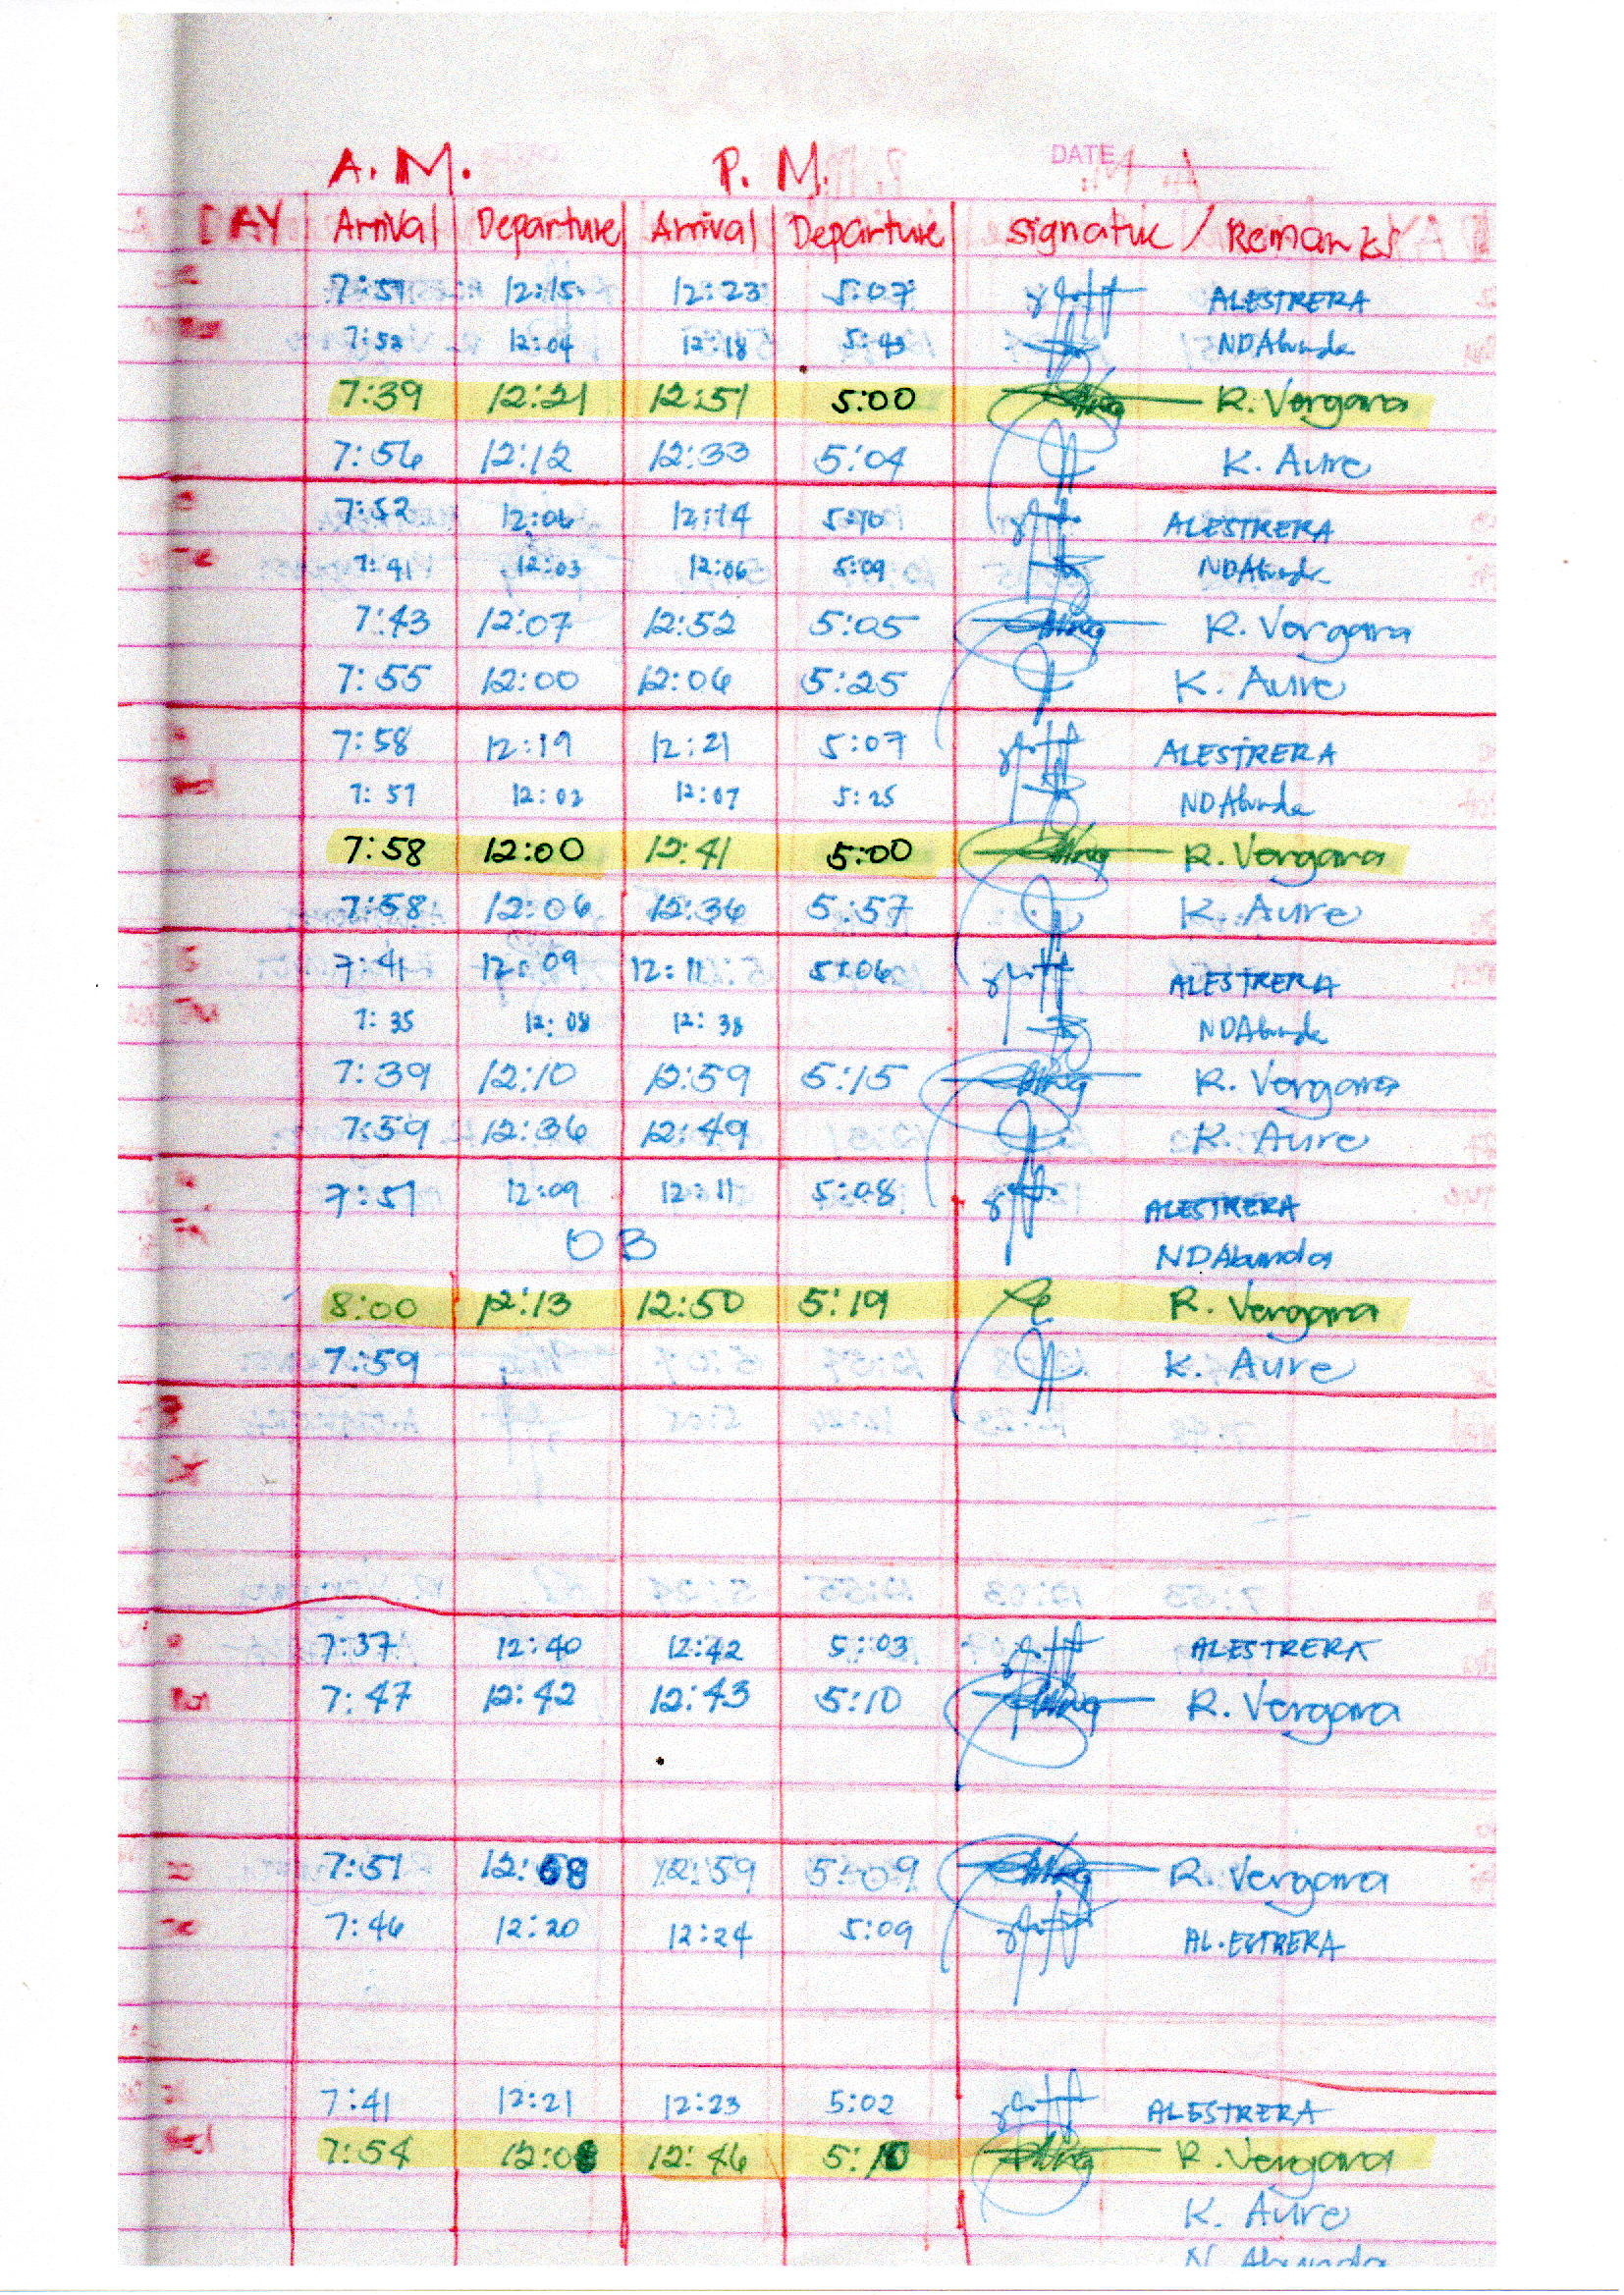 A. M. P. M. DATE
DAY Arrival Departure Arrival Departure Signature / Remarks
7:51 12:15 12:23 5:07 ALESTRERA
7:53 12:04 12:18 5:43 NDAbunda
7:39 12:21 12:51 5:00 R. Vergara
7:56 12:12 12:33 5:04 K. Aure
7:52 12:06 12:14 5:10 ALESTRERA
7:41 12:03 12:06 5:09 NDAbunda
7:43 12:07 12:52 5:05 R. Vergara
7:55 12:00 12:06 5:25 K. Aure
7:58 12:19 12:21 5:07 ALESTRERA
7:51 12:02 12:07 5:25 NDAbunda
7:58 12:00 12:41 5:00 R. Vergara
7:58 12:06 12:36 5:57 K. Aure
7:41 12:09 12:11 5:06 ALESTRERA
7:35 12:08 12:38 NDAbunda
7:39 12:10 12:59 5:15 R. Vergara
7:59 12:36 12:49 K. Aure
7:51 12:09 12:11 5:08 ALESTRERA
OB NDAbunda
8:00 12:13 12:50 5:19 R. Vergara
7:59 K. Aure
7:37 12:40 12:42 5:03 ALESTRERA
7:47 12:42 12:43 5:10 R. Vergara
7:51 12:58 12:59 5:09 R. Vergara
7:46 12:20 12:24 5:09 AL.ESTRERA
7:41 12:21 12:23 5:02 ALESTRERA
7:54 12:08 12:46 5:10 R. Vergara
K. Aure
N. Abunda